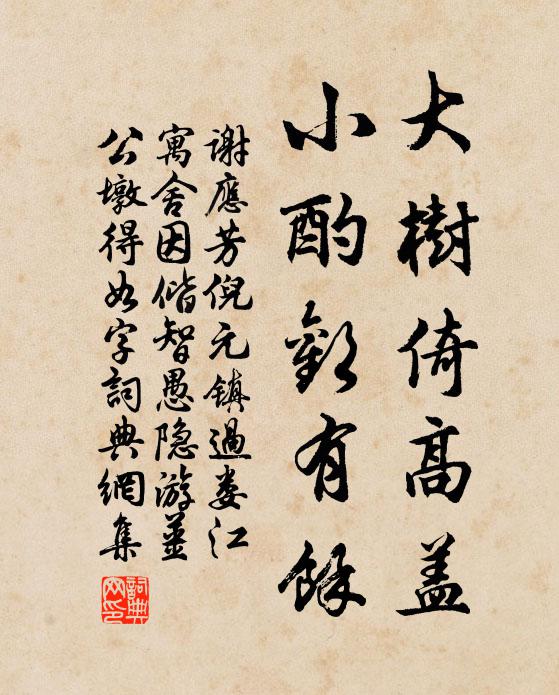 大樹倚高盖
小酌歡有餘
謝應芳倪元鎮過婁江
寓舍因偕智愚隐游薑
公墩得如字詞典網集
詞典网印